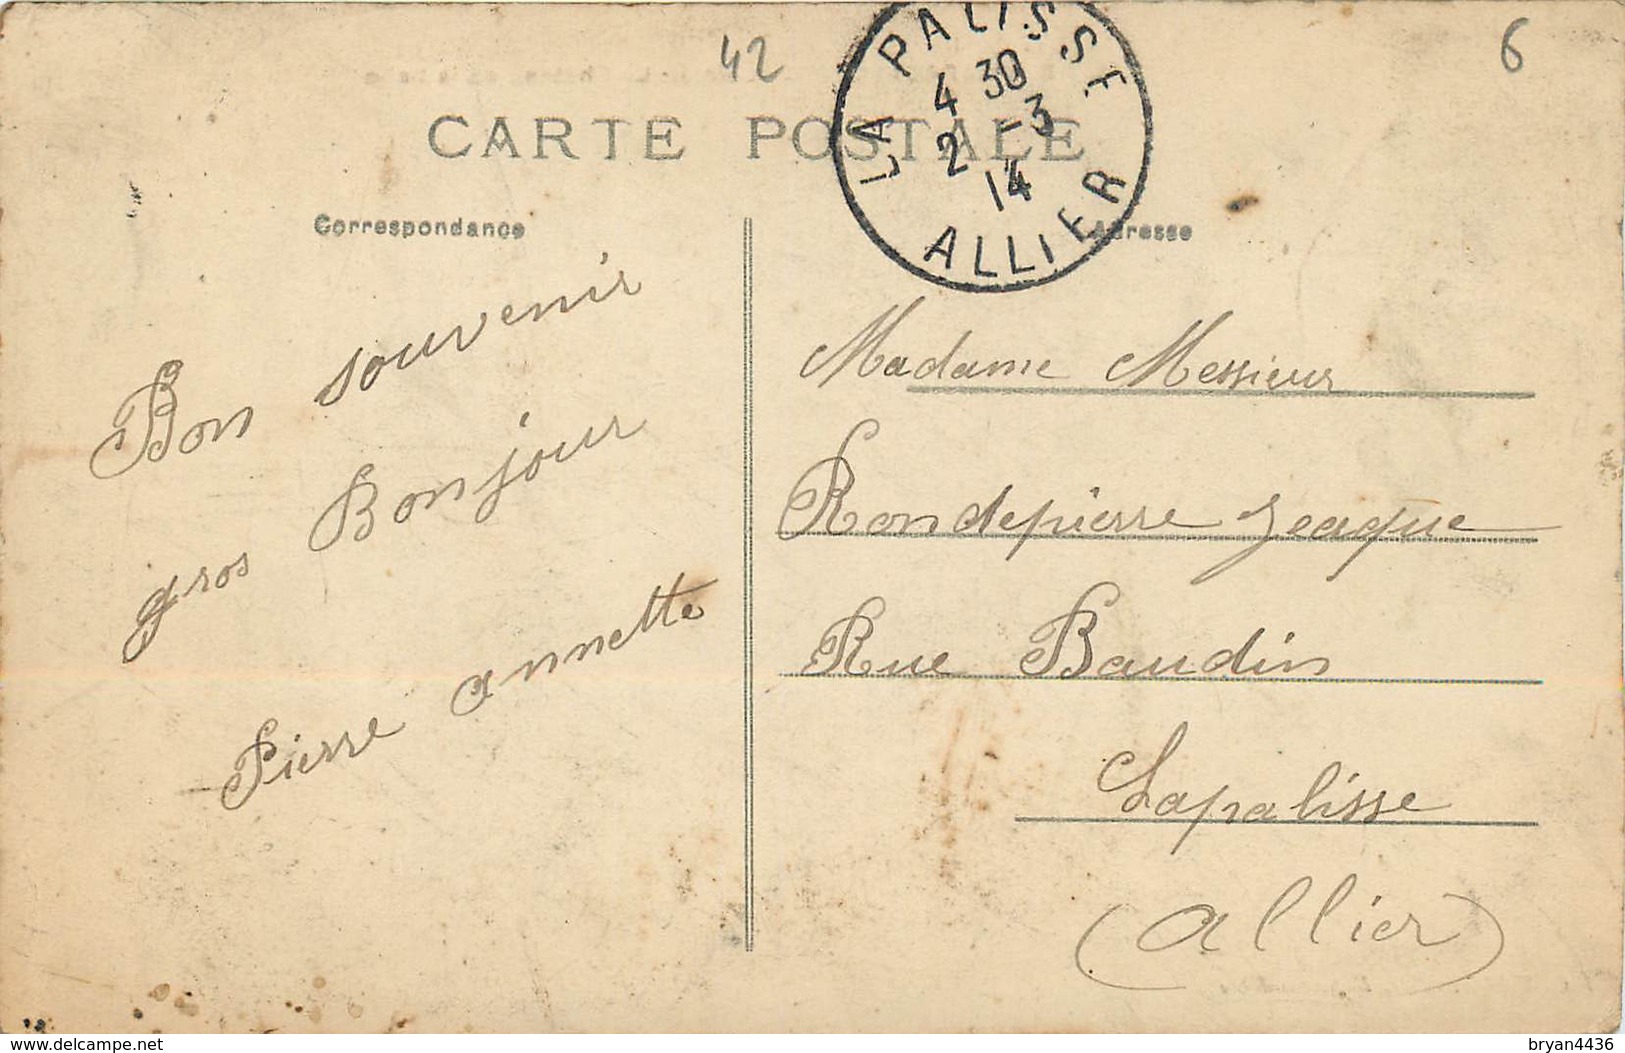 42
6
LA PALISSE
4 30
2 -3
14
ALLIER
CARTE POSTALE
Correspondance
Adresse
Bon souvenir
gros Bonjour
Pierre annette
Madame Messieurs
Rondepierre Jeaque
Rue Baudin
Lapalisse
(allier)
delcampe.net
bryan4436